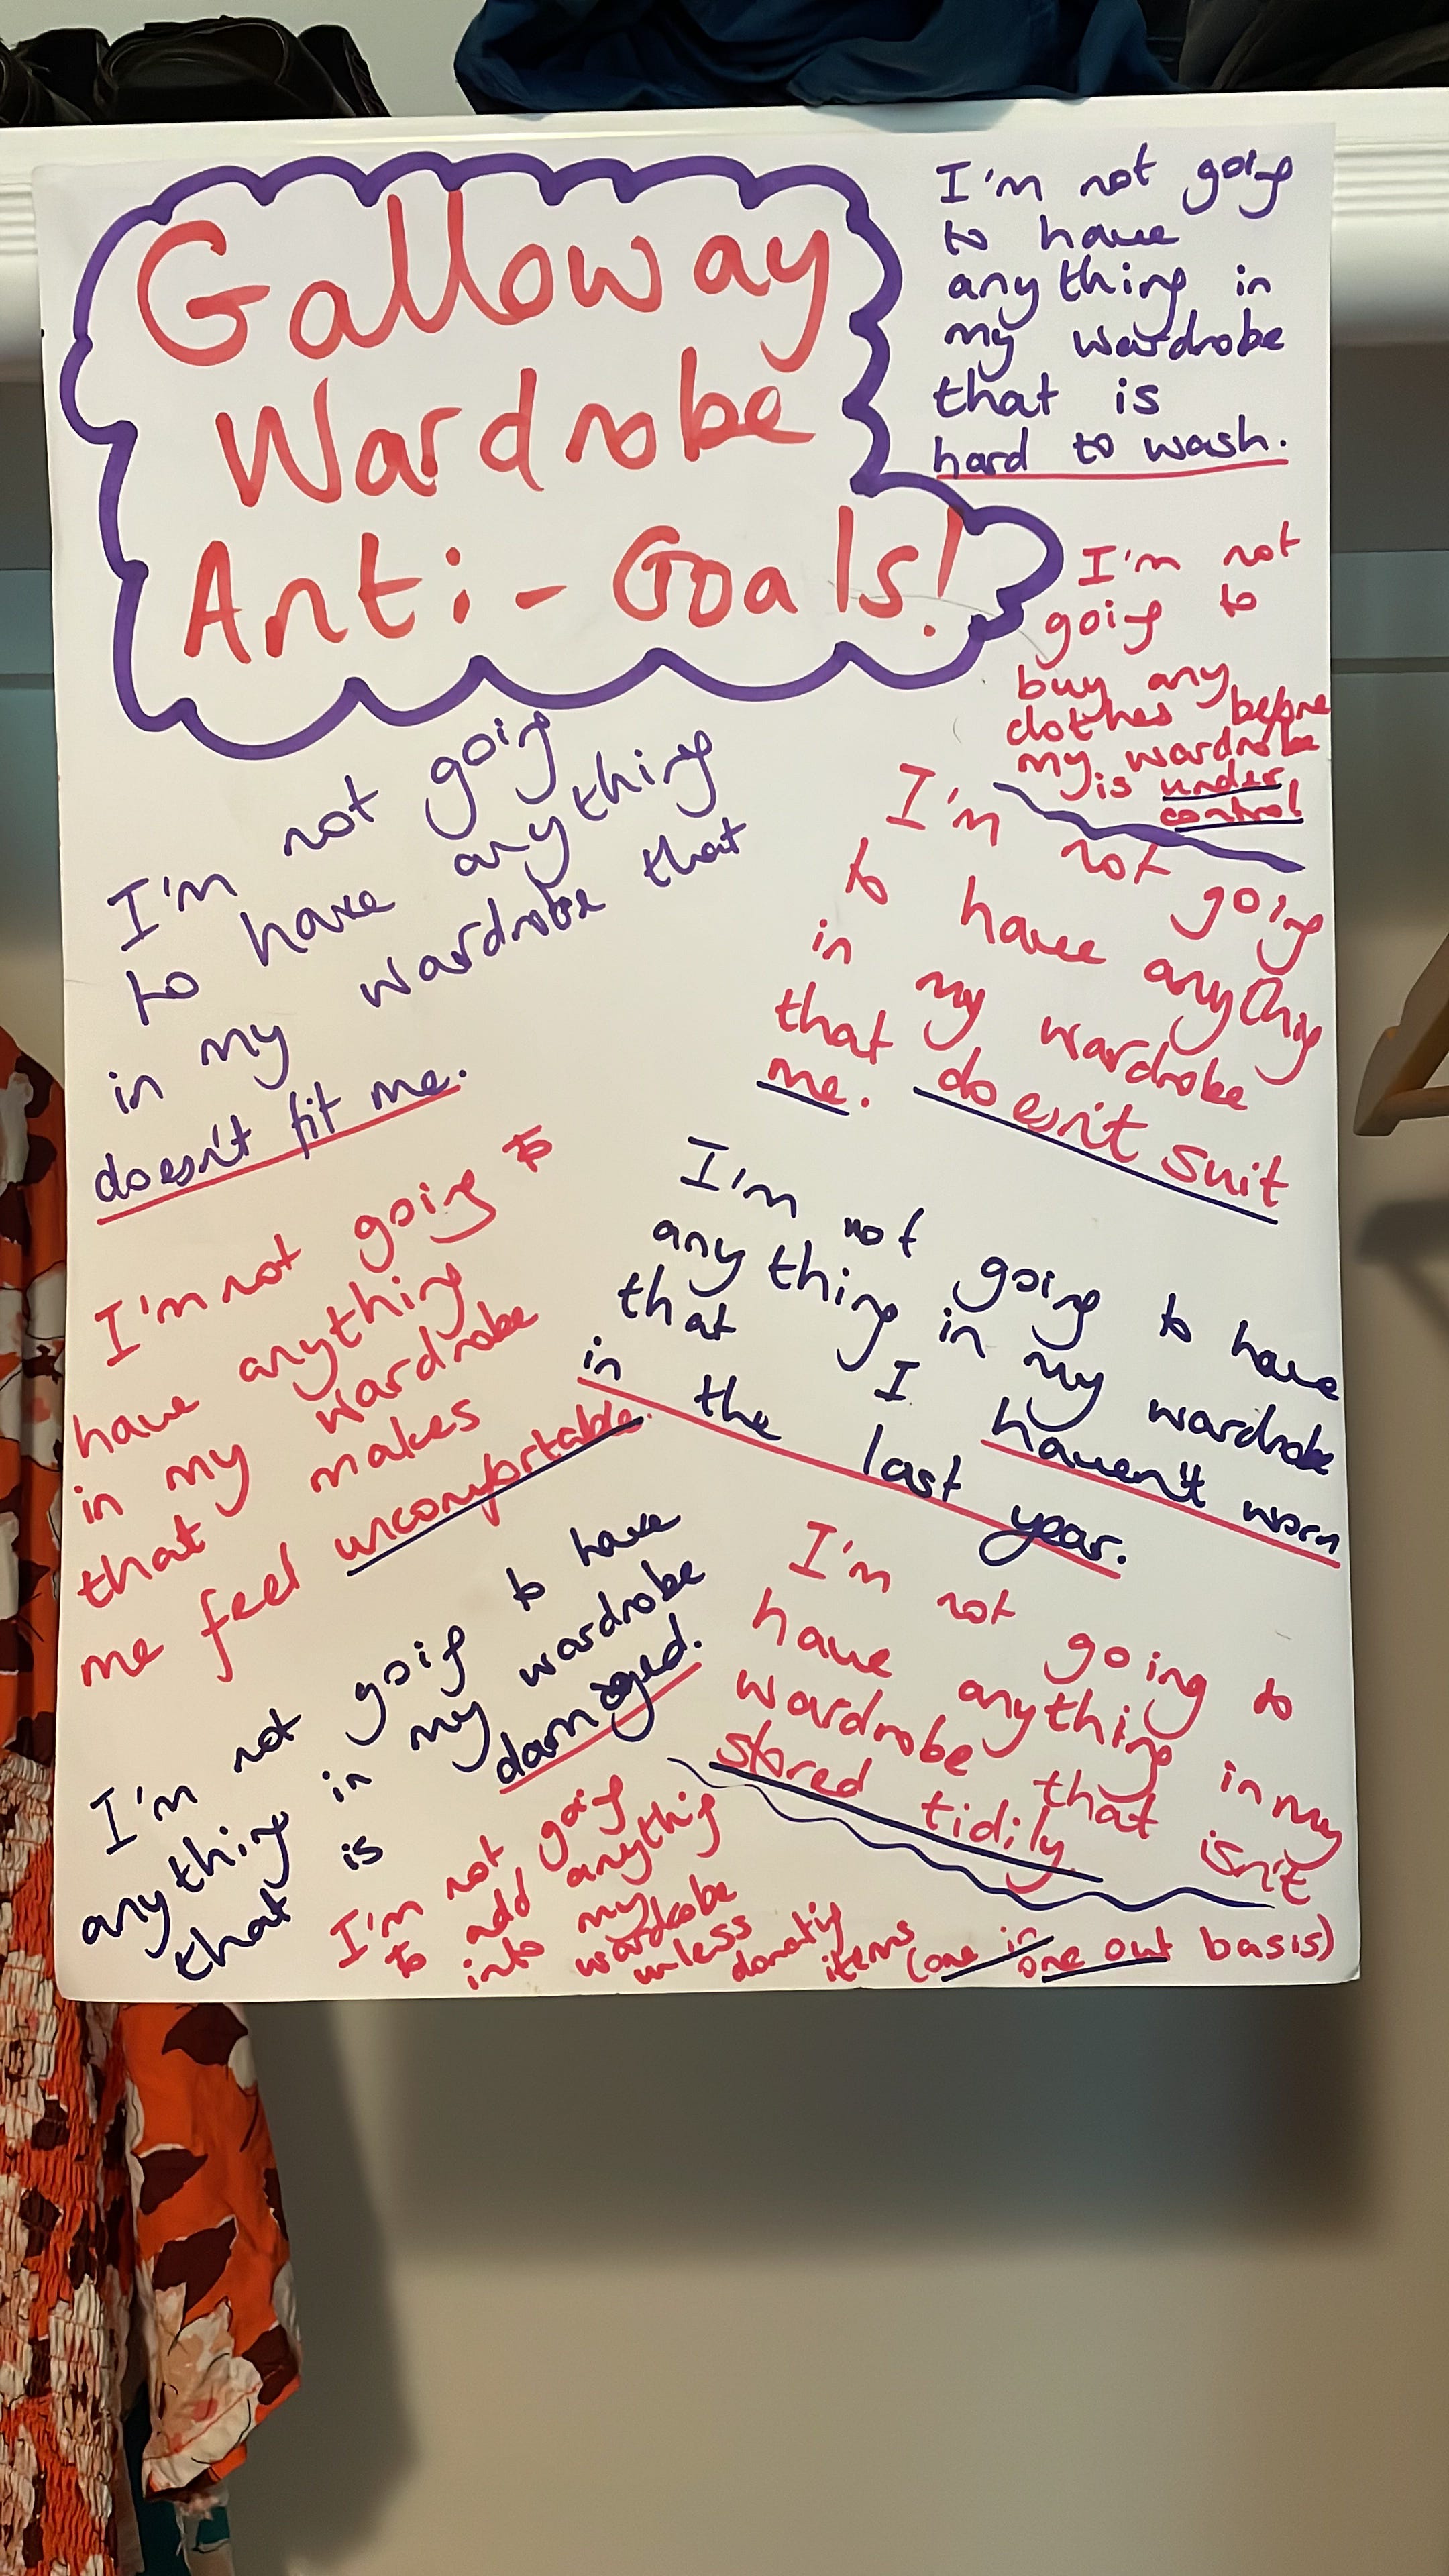 Galloway
Wardrobe
Anti-Goals!
I'm not going
to have
anything in
my wardrobe
that is
hard to wash.
I'm not
going to
buy any
clothes before
my wardrobe
is under
control
I'm not going
to have anything
in my wardrobe that
doesn't fit me.
I'm not going
to have anything
in my wardrobe
that doesn't suit
me.
I'm not going to
have anything
in my wardrobe
that makes
me feel uncomfortable.
I'm not going to have
anything in my wardrobe
that I haven't worn
in the last year.
I'm not going to have
anything in my wardrobe
that is damaged.
I'm not going to
have anything in my
wardrobe that isn't
stored tidily.
I'm not going
to add anything
into my
wardrobe
unless
donatig
items (one in one out basis)